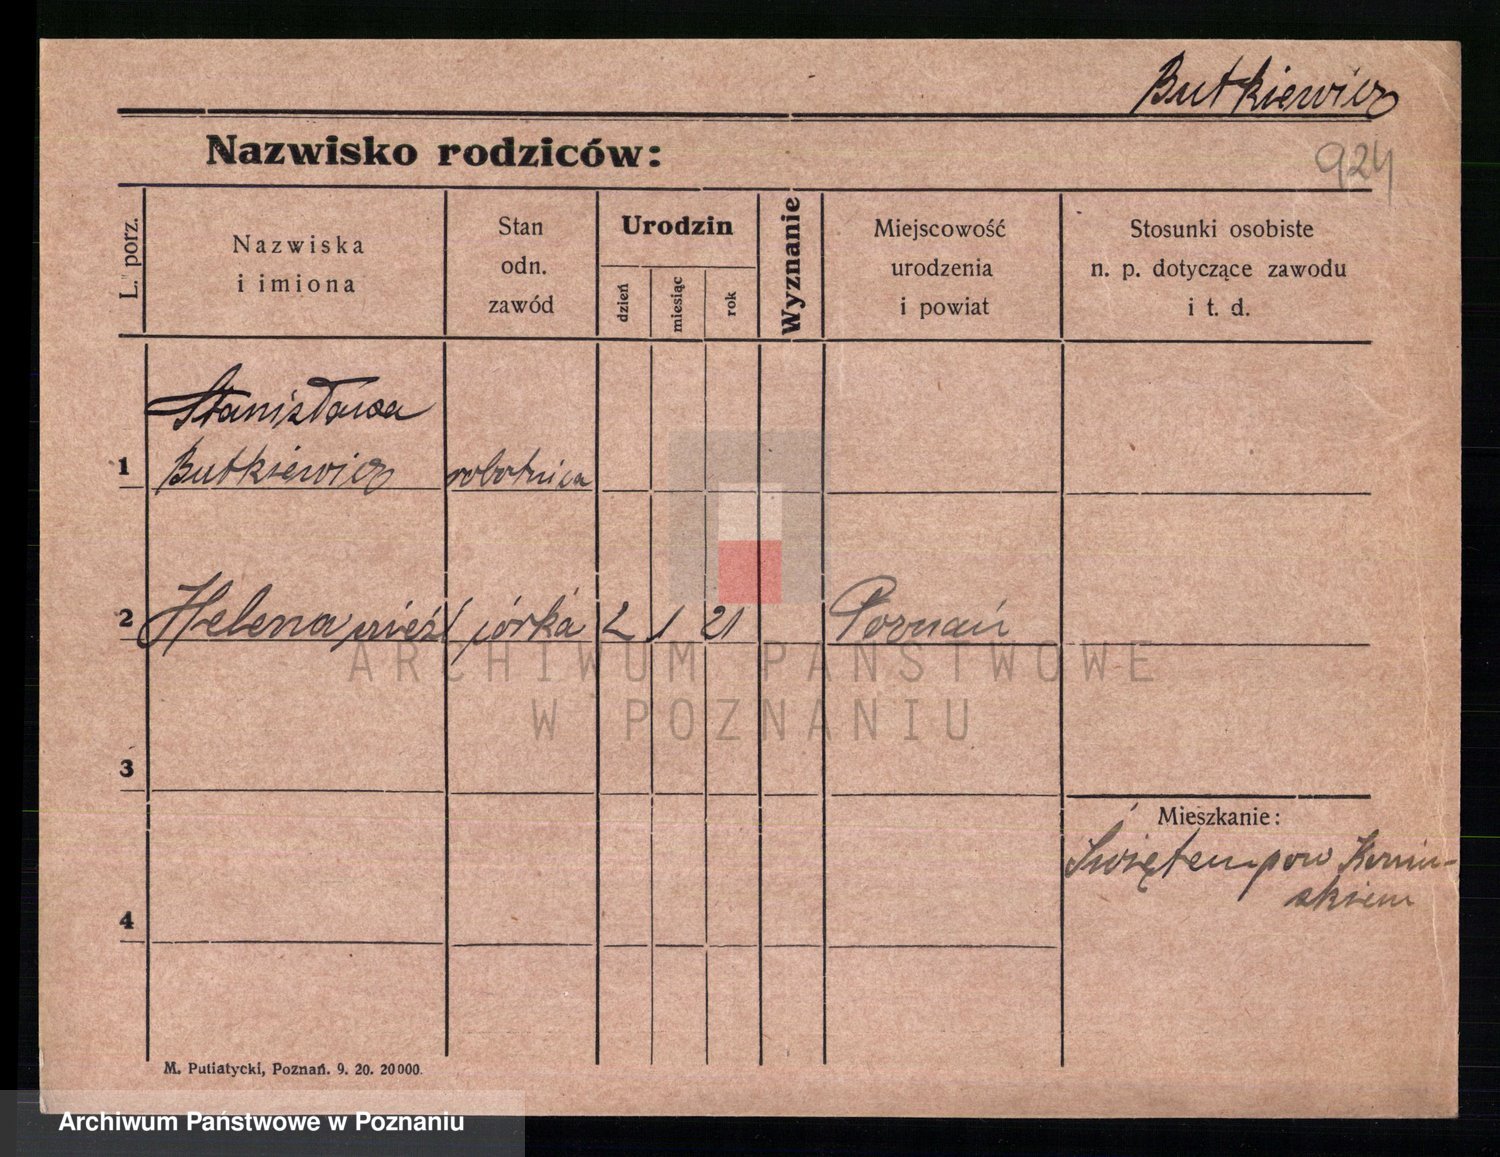 Butkiewicz
Nazwisko rodziców:
924
L. porz.
Nazwiska
i imiona
Stan
odn.
zawód
Urodzin
dzień
miesiąc
rok
Wyznanie
Miejscowość
urodzenia
i powiat
Stosunki osobiste
n. p. dotyczące zawodu
i t. d.
Stanisława
1 Butkiewicz robotnica
2 Helena córka 2 1 21 Poznań
ARCHIWUM PAŃSTWOWE
W POZNANIU
3
Mieszkanie:
pow
skiem
4
M. Putiatycki, Poznań. 9. 20. 20000.
Archiwum Państwowe w Poznaniu